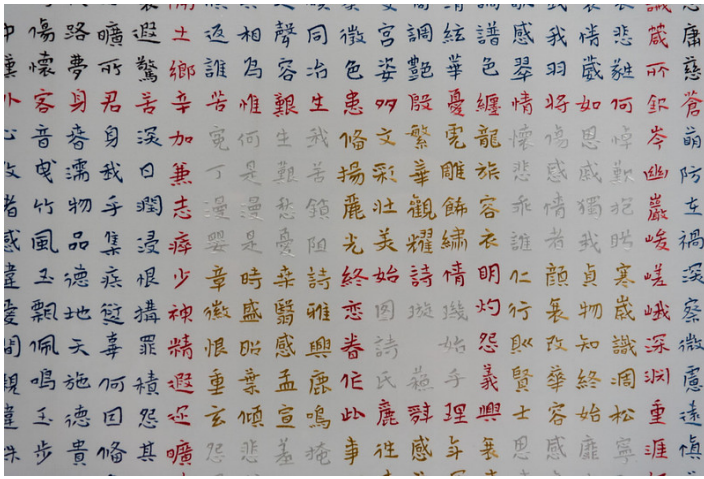 中傷路曠遐土返相聲同徵宮調絃譜感我情悲藏庸
懷夢所驚鄉誰為容冶色姿艷華色翠羽葳蕤所慈
外客身君苦辛苦惟艱生患多殷憂纏情將如何欽蒼
心音眷身深加冤何生我備文繁虎龍懷傷思悼岑萌
改曳濡我日兼丁是艱苦揚彩華雕旂悲感戚歎幽防
者竹物乎潤志漫漫愁鎖麗壯觀飾容乖情獨抱巖在
感風品集浸瘁嬰是憂阻光美耀繡衣誰者我峻禍
違玉德疾根少章時桑詩終始詩情明仁顏貞寒嵯深
飄地愆搆神徽盛翳雅恋図璇璣灼行衰物歲峨察
間佩天辜罪精恨昭感興眷詩始怨改知識深微
鳴施何積遐重葉孟鹿作氏蘇乎義賢華終凋淵慮
違玉德因怨近玄傾宣鳴此麗辭理興士容始松重遠
殊步貴備其曠怨悲羞掩事往感年衰思感靡寧涯慎